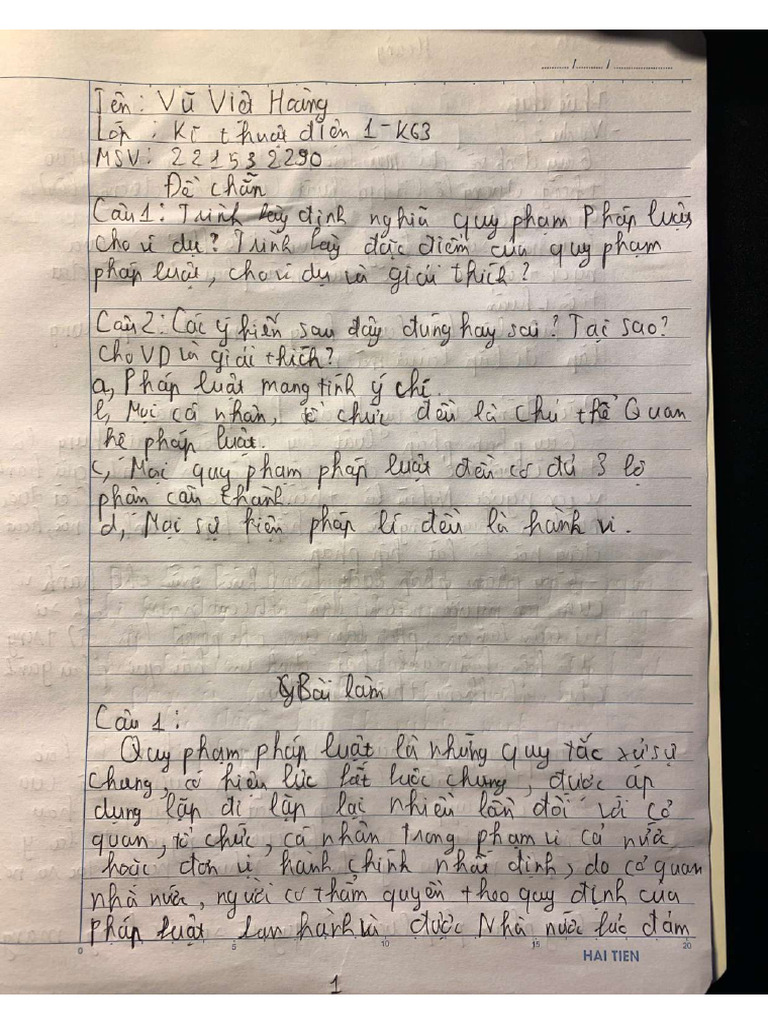 ....../....../............
Tên : Vũ Việt Hoàng
Lớp : Kĩ thuật điện 1-K63
MSV: 221532290
Đề chẵn
Câu 1: Trình bày định nghĩa quy phạm Pháp luật,
cho ví dụ? Trình bày đặc điểm của quy phạm
pháp luật, cho ví dụ và giải thích?
Câu 2: Các ý kiến sau đây đúng hay sai? Tại sao?
Cho VD và giải thích?
a, Pháp luật mang tính ý chí.
b, Mọi cá nhân, tổ chức đều là chủ thể Quan
hệ pháp luật.
c, Mọi quy phạm pháp luật đều có đủ 3 bộ
phận cấu thành.
d, Mọi sự kiện pháp lí đều là hành vi.
Bài làm
Câu 1:
Quy phạm pháp luật là những quy tắc xử sự
chung, có hiệu lực bắt buộc chung, được áp
dụng lặp đi lặp lại nhiều lần đối với cơ
quan, tổ chức, cá nhân trong phạm vi cả nước
hoặc đơn vị hành chính nhất định, do cơ quan
nhà nước, người có thẩm quyền theo quy định của
pháp luật ban hành và được Nhà nước bảo đảm
0 5 10 15 20
HAI TIEN
1